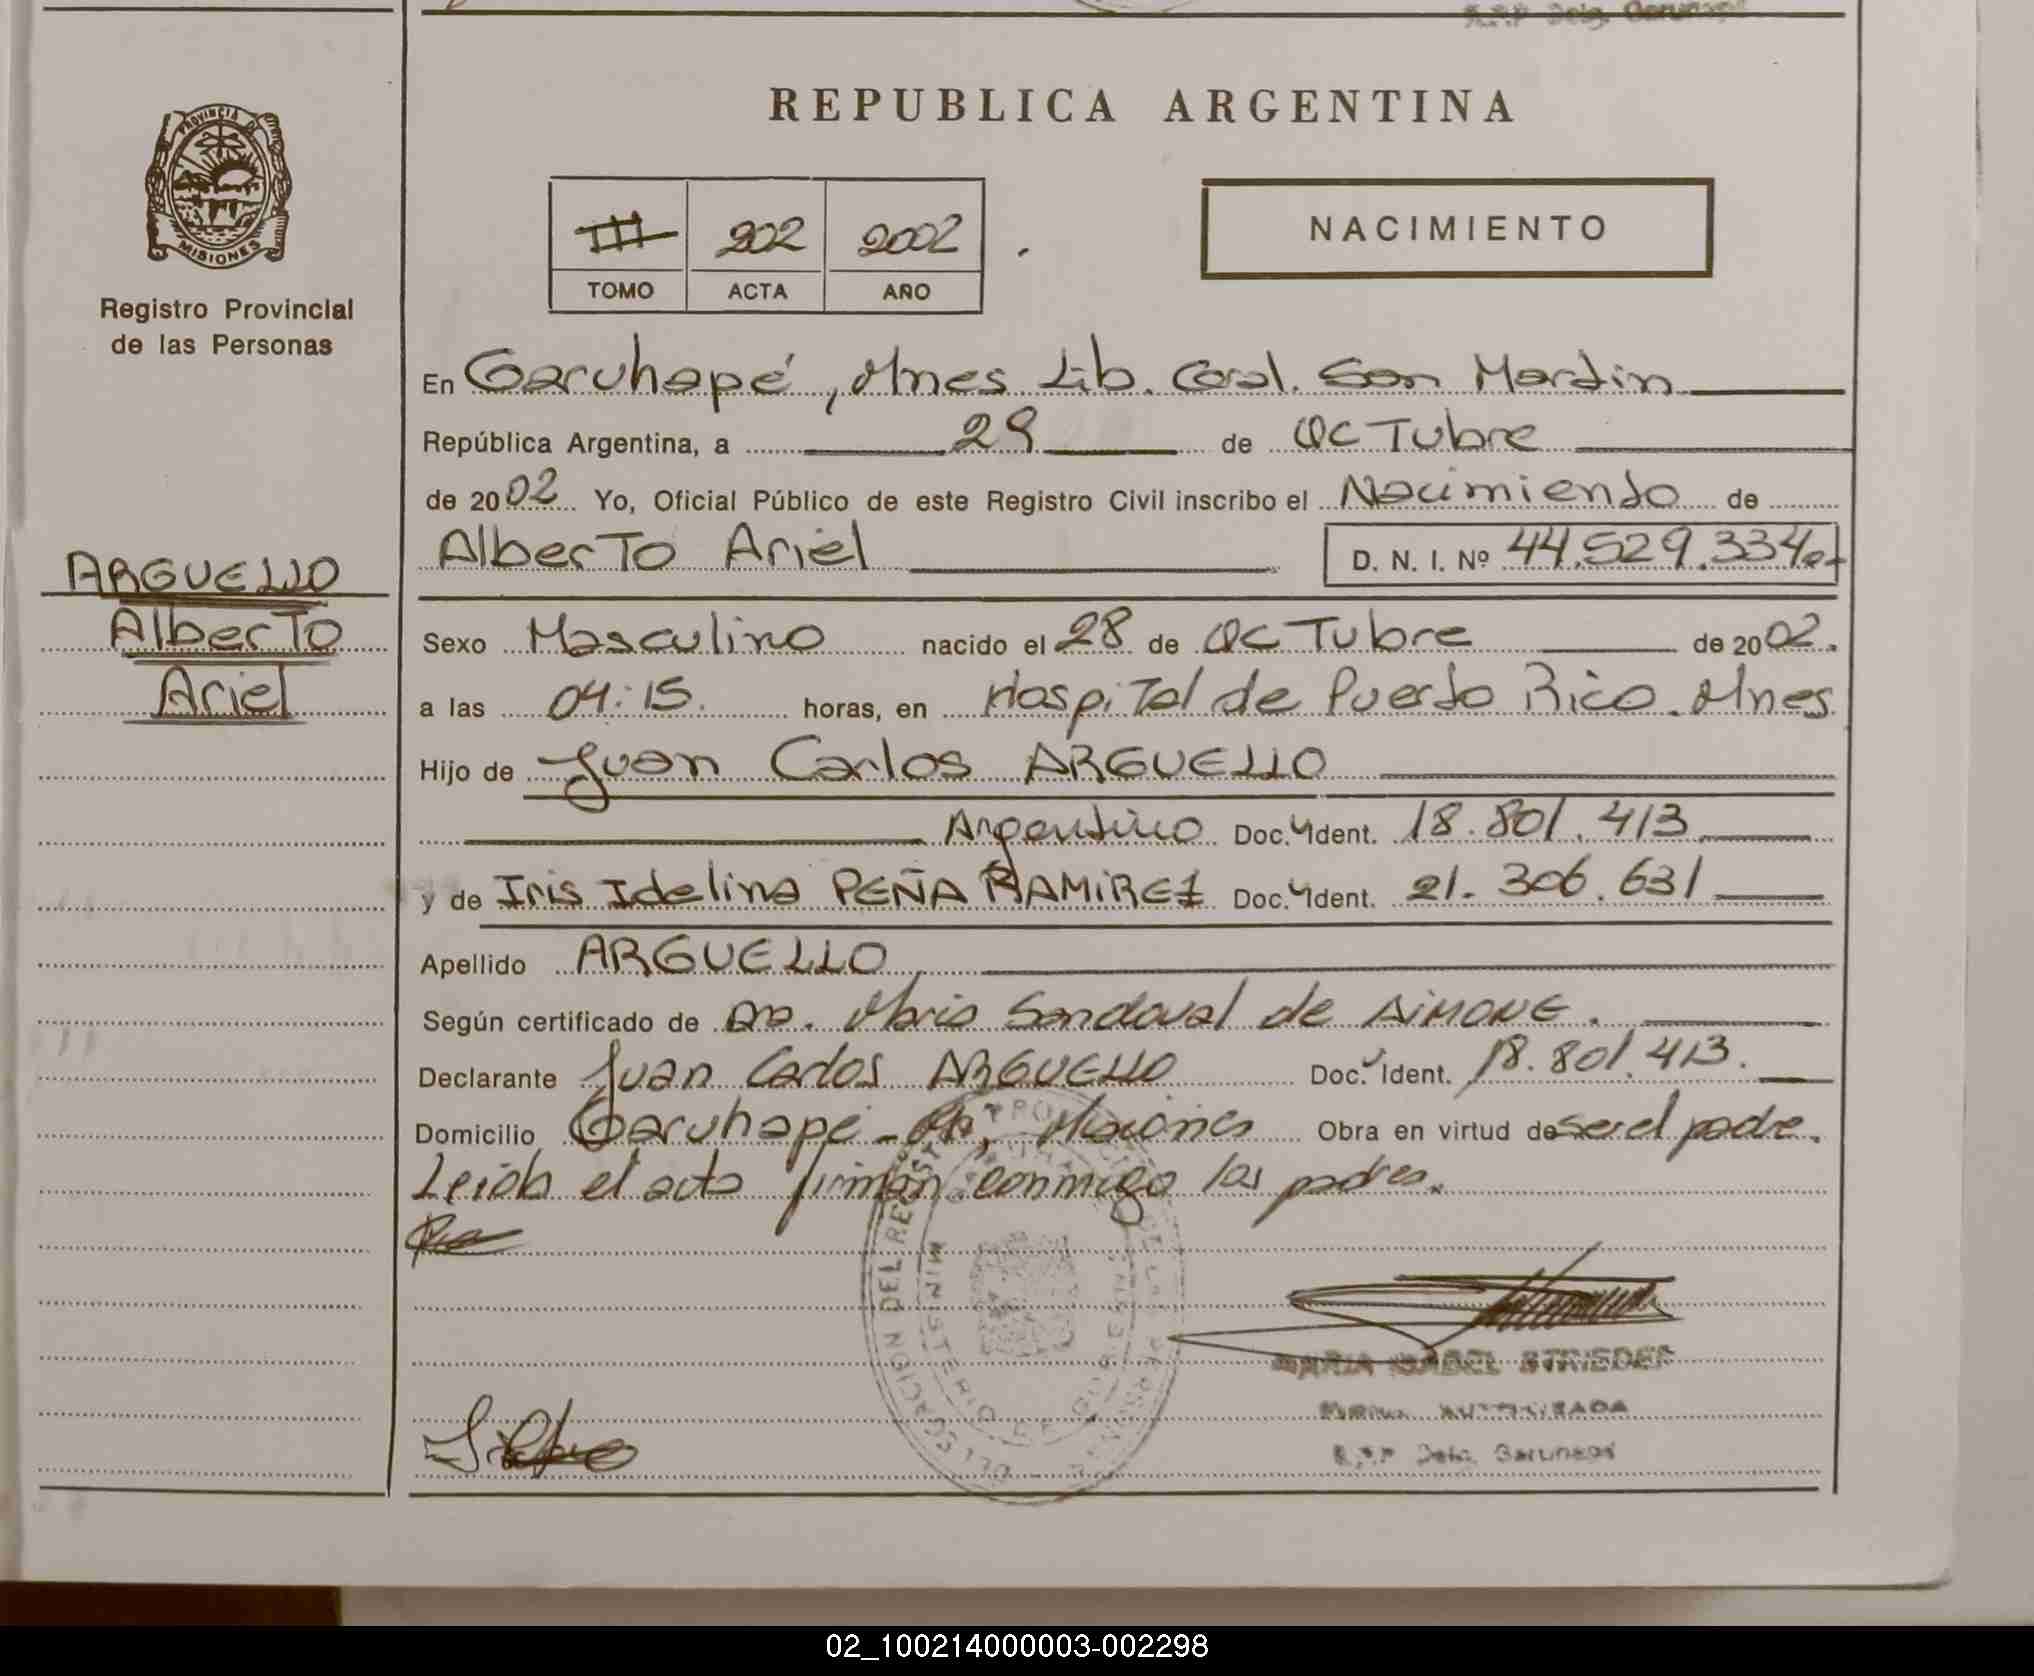 REPUBLICA ARGENTINA
PROVINCIA DE
MISIONES
Registro Provincial
de las Personas
III 202 2002
TOMO ACTA AÑO
NACIMIENTO
En Garuhapé, Mnes Lib. Gral. San Martin
República Argentina, a 29 de OcTubre
de 2002 Yo, Oficial Público de este Registro Civil inscribo el Nacimiento de
Alberto Ariel D. N. I. Nº 44.529.334
ARGUELLO
Alberto
Ariel
Sexo Masculino nacido el 28 de OcTubre de 2002.
a las 04:15. horas, en HospiTal de Puerto Rico. Mnes
Hijo de Juan Carlos ARGUELLO
Argentino Doc. Ident. 18.801.413
y de Iris Idelina PEÑA RAMIREZ Doc. Ident. 21.306.631
Apellido ARGUELLO
Según certificado de Dra. Maria Sandoval de AIMONE.
Declarante Juan Carlos ARGUELLO Doc. Ident. 18.801.413.
Domicilio Garuhapé - Misiones Obra en virtud de ser el padre.
Leida el acta firman conmigo los padres.
MARIA ISABEL STRIEDER
FIRMA AUTORIZADA
R.P.P Deleg. Garuhapé
02_100214000003-002298